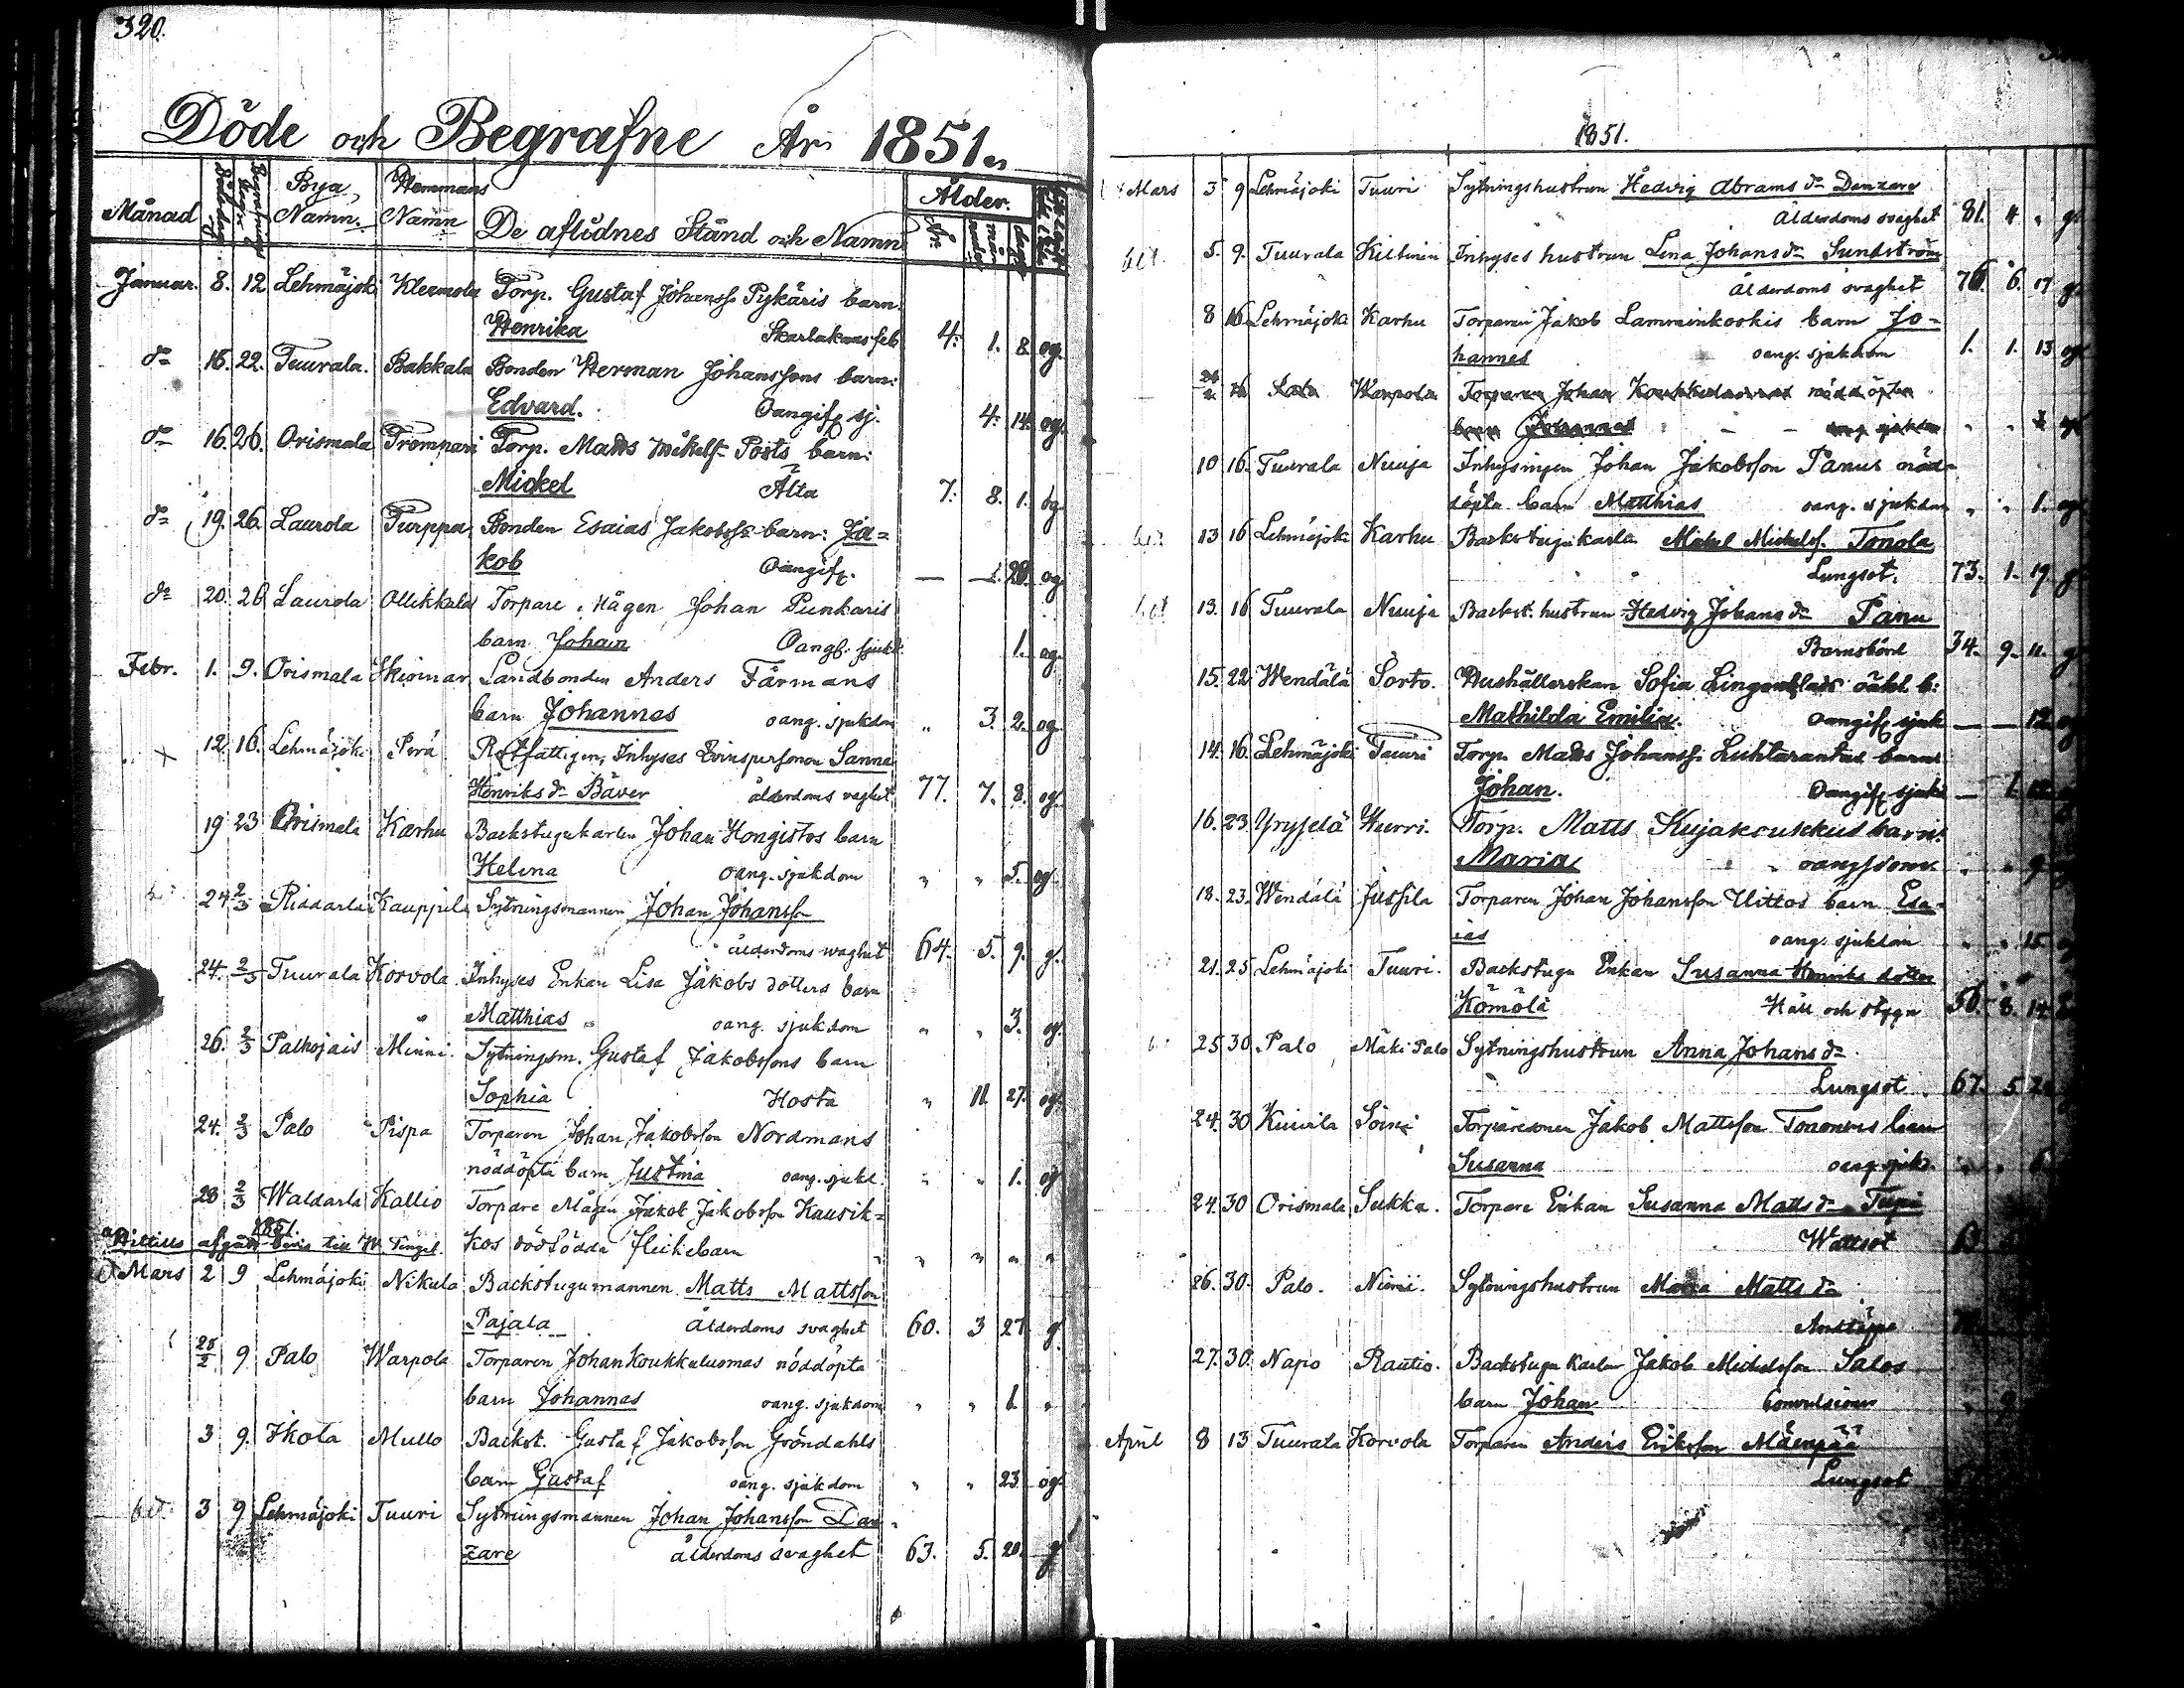 320.
Döde och Begrafne År 1851.
Månad Bya Namn. Hemmans Namn De aflidnes Stånd och Namn Ålder.
Januar. 8. 12 Lehmäjoki Kleemola Torp. Gustaf Johanss. Pykäris barn:
Henrika Skarlakansfeb. 4. 1. 8. og.
do 18. 22. Tuurala. Bakkala Bonden Herman Johanssons barn:
Edvard. Oangif. sj. 4. 14. og.
do 16. 26. Orismala Trompari Torp. Matts Mikelss. Posts barn:
Mickel Ålta 7. 8. 1. og
do 19. 26. Laurola Turppa Bonden Esaias Jakobss. barn: Ja-
kob Oangif. — 1. 20. og
do 20. 26 Laurola Ollikkala Torpare Mågen Johan Punkaris
barn Johan Oangf. sjukd. 1. og.
Febr. 1. 9. Orismala Skinnar Landbonden Anders Färmans
barn Johannes oang. sjukdom " 3 2. og.
12. 16. Lehmäjoki Perä Rotfattigen, Inhyses Qvinspersonen Sanna
Henriks do Bäver ålderdoms svaghet 77. 7. 8. og.
19 23 Orismala Karhu Backstugukarlen Johan Hongistos barn
Helena oang. sjukdom " " 5. og.
24 2/3 Riddarla Kauppila Sytningsmannen Johan Johansson
ålderdoms svaghet 64. 5. 9. g.
24. 2/3 Tuurala Korvola Inhyses Enkan Lisa Jakobs dotters barn
Matthias oang. sjukdom " " 3. og.
26. 2/3 Palhojais Minni. Sytningsm. Gustaf Jakobssons barn
Sophia Hosta " 11. 27. og.
24. 2/3 Palo Pispa Torparen Johan Jakobsson Nordmans
nöddöpta barn Justina oang. sjukd. " " 1. og
28 2/3 Waldarla Kallio Torpare Mågen Jakob Jakobsson Kausik-
Hittills afgått 1851 till kos dödfödda flickebarn " " " "
Mars 2 9 Lehmäjoki Nikula Backstugumannen Matts Mattsson
Pajala Ålderdoms svaghet 60. 3 27. g.
28/2 9 Palo Warpola Torparen Johan Koukkuluomas nöddöpta
barn Johannes oang. sjukdom " " 1. "
3 9. Ikola Mullo Backst. Gustaf Jakobsson Gröndahls
barn Gustaf oang. sjukdom " " 23 og.
bet. 3 9 Lehmäjoki Tuuri Sytningsmannen Johan Johansson Dan-
zare ålderdoms svaghet 63. 5. 20. g.
1851.
Mars 3 9 Lehmäjoki Tuuri Sytningshustrun Hedvig Abrams do Danzare
Ålderdoms svaghet 81. 4 " g.
bet. 5. 9. Tuurala Kiltinen Inhyses hustrun Lena Johans do Sundström
ålderdoms svaghet 76. 6. 17 g.
8 16. Lehmäjoki Karhu Torparen Jakob Lamminkoskis barn Jo-
hannes oang. sjukdom 1. 1. 13 og.
Warpola Torparen Johan Koukkuluomas nöddöpta
barn Johannes oang. sjukdom
10 16. Tuurala Nuuja Inhysingen Johan Jakobsson Panus nöd-
döpta barn Matthias oang. sjukdom " " 1. og.
13 16 Lehmäjoki Karhu Backstugukarlen Mickel Mickelss. Tonola
Lungsot. 73. 1. 19. g.
13. 16 Tuurala Nuuja Backst. hustrun Hedvig Johans do Panu
Barnsbörd 34. 9. 11. g.
15. 22 Wendälä Sorto. Hushållerskan Sofia oäkt. b:
Mathilda Emilia. Oangif. sjuk. — — 12 og
14. 16. Lehmäjoki Tuuri Torp. Matts Johanss. Luhtarantas barn:
Johan. Oangif. sjukd. —
16. 23. Yryselä Wurri. Torp. Matts Kujakoukkus barn:
Maria " " 9.
18. 23. Wendälä Jussila Torparen Johan Johansson Uittos barn Esa-
ias oang. sjukdom " " 15. og
21. 25 Lehmäjoki Tuuri. Backstugu Enkan Susanna Henriks dotter
Kömölä Håll och stygn 50. 8. 14.
25 30. Palo Mäki Palo Sytningshustrun Anna Johans do
Lungsot 67. 5
24. 30 Kuivila Soini Torparesonen Jakob Mattsson Tononens barn
Susanna oang. sjukd.
24. 30 Orismala Sukka. Torpare Enkan Susanna Matts do
Wattsot
26. 30. Palo. Niemi. Sytningshustrun Maria Matts do
Andtäppa
27. 30. Napo Rautio. Backstugu karlen Jakob Mickelsson Salos
barn Johan Convulsioner
April 8 13 Tuurala Korvola Torparen Anders Eriksson Mäenpää
Lungsot